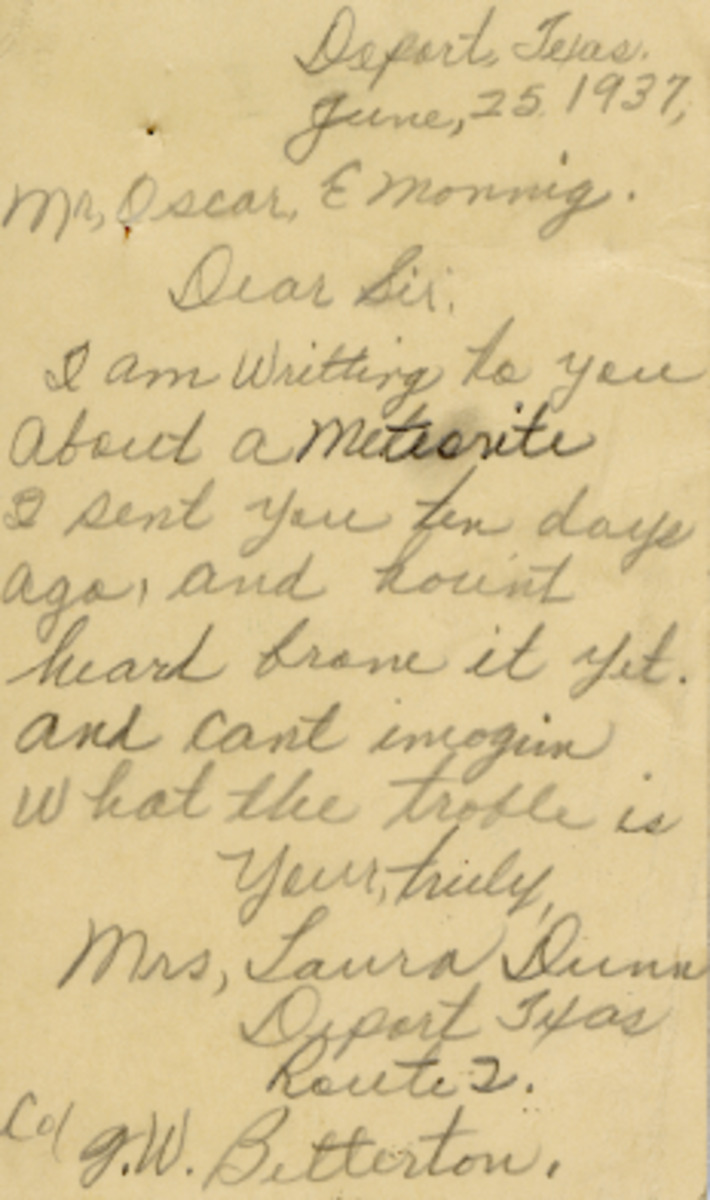 Deport, Texas.
June, 25 1937,
Mr, Oscar, E Monnig.
Dear Sir.
I am Writting to you
About a Meteorite
I sent you ten days
ago, and hovint
heard brome it yet.
and cant imogin
What the troble is
Your, truly,
Mrs, Laura Dunn
Deport Texas
Route 2.
Co/ G.W. Betterton.